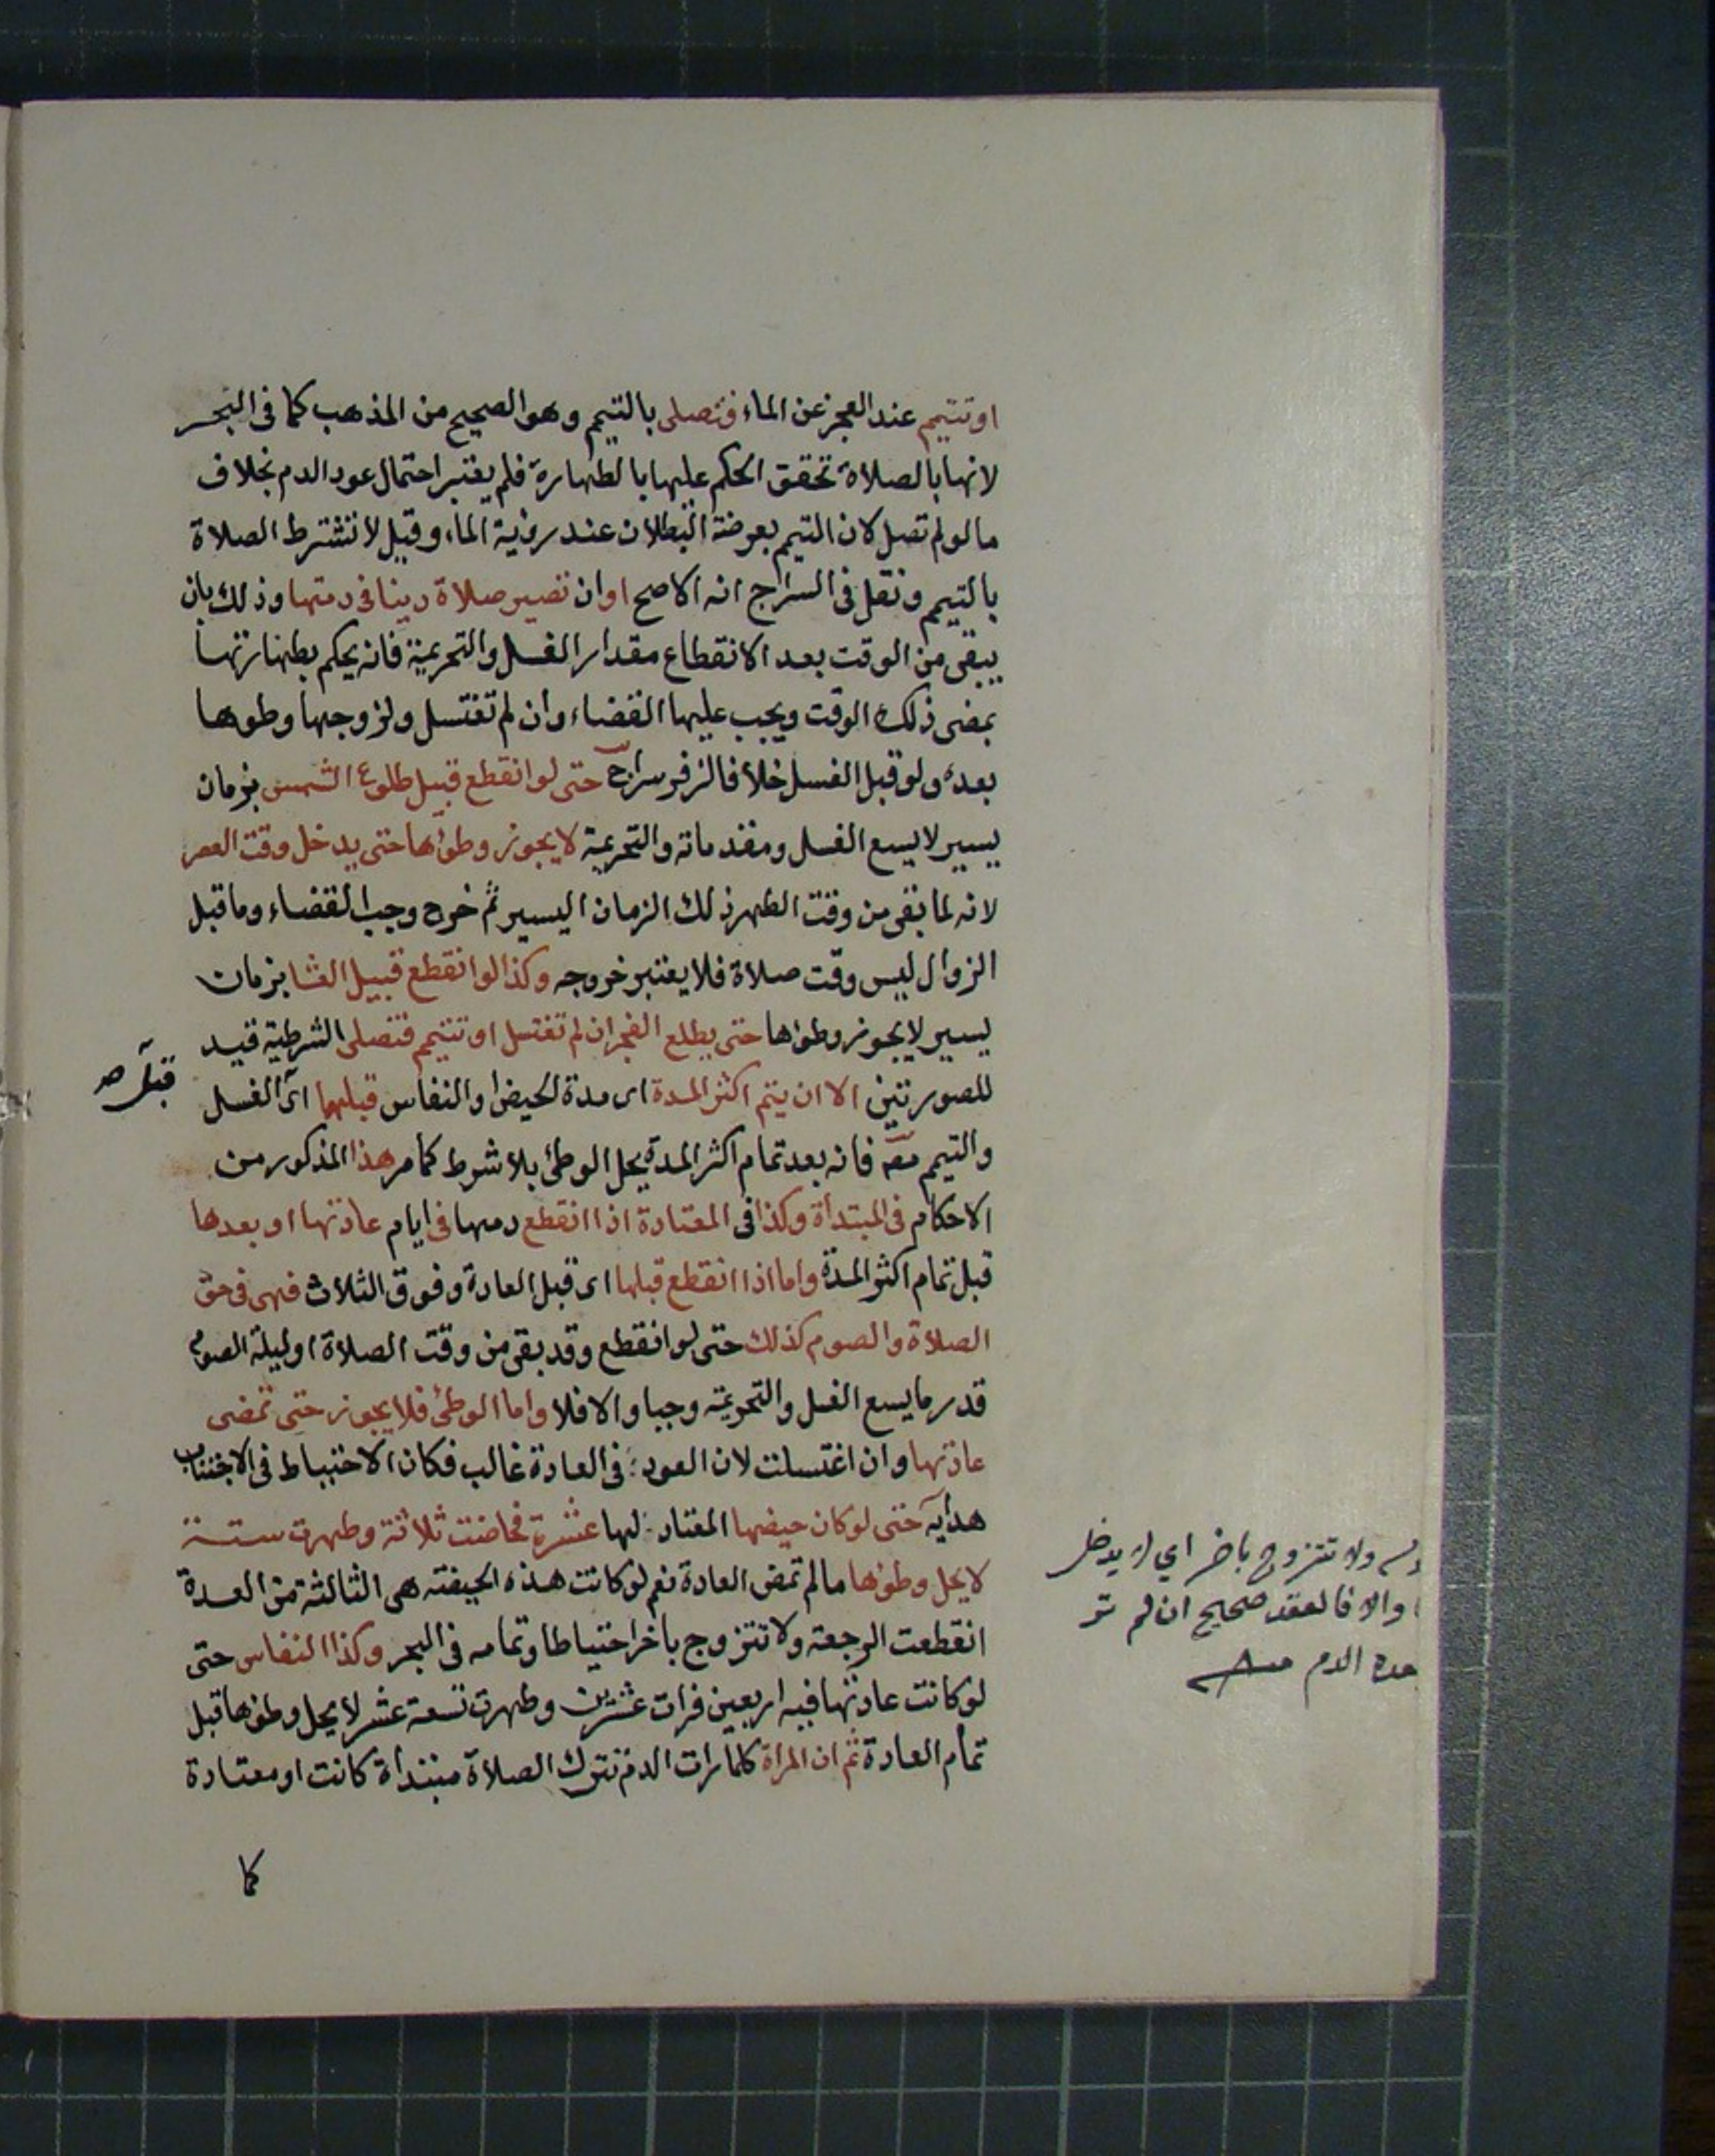 او تتيمم عند العجز عن الماء فتصلى بالتيمم وهو الصحيح من المذهب كما فى البحر
لانها بالصلاة تحقق الحكم عليها بالطهارة فلم يعتبر احتمال عود الدم بخلاف
ما لو لم تصل لان التيمم بعرضة البطلان عند رؤية الماء وقيل لا تشترط الصلاة
بالتيمم ونقل فى السراج انه الاصح او ان تصير صلاة دينا فى ذمتها وذلك بان
يبقى من الوقت بعد الانقطاع مقدار الغسل والتحريمة فانه يحكم بطهارتها
بمضى ذلك الوقت ويجب عليها القضاء وان لم تغتسل ولزوجها وطوها
بعده ولو قبل الغسل خلافا لزفر سراج حتى لو انقطع قبيل طلوع الشمس بزمان
يسير لا يسع الغسل ومقدماته والتحريمة لا يجوز وطؤها حتى يدخل وقت العصر
لانه لما بقى من وقت الظهر ذلك الزمان اليسير ثم خرج وجب القضاء وما قبل
الزوال ليس وقت صلاة فلا يعتبر خروجه وكذا لو انقطع قبيل العشا بزمان
يسير لا يجوز وطؤها حتى يطلع الفجر ان لم تغتسل او تتيمم فتصلى الشرطية قيد
للصورتين الا ان يتم اكثر المدة اى مدة الحيض او النفاس قبلهما اى الغسل
قبل صح
والتيمم معه فانه بعد تمام اكثر المدة يحل الوطئ بلا شرط كما مر هذا المذكور من
الاحكام فى المبتدأة وكذا فى المعتادة اذا انقطع دمها فى ايام عادتها او بعدها
قبل تمام اكثر المدة واما اذا انقطع قبلها اى قبل العادة وفوق الثلاث فهى فى حق
الصلاة والصوم كذلك حتى لو انقطع وقد بقى من وقت الصلاة او ليلة الصوم
قدر ما يسع الغسل والتحريمة وجبا والا فلا واما الوطئ فلا يجوز حتى تمضى
عادتها وان اغتسلت لان العود فى العادة غالب فكان الاحتياط فى الاجتناب
هداية حتى لو كان حيضها المعتاد لها عشرة فحاضت ثلاثة وطهرت ستة
لا يحل وطؤها ما لم تمض العادة نعم لو كانت هذه الحيضة هى الثالثة من العدة
انقطعت الرجعة ولا تتزوج باخر احتياطا وتمامه فى البحر وكذا النفاس حتى
لو كانت عادتها فيه اربعين فرات عشرين وطهرت تسعة عشر لا يحل وطؤها قبل
تمام العادة ثم ان المراة كلما رات الدم تترك الصلاة مبتدأة كانت او معتادة
كما
ولا تتزوج باخر اي لا يدخل
والا فالعقد صحيح ان لم تر
الدم